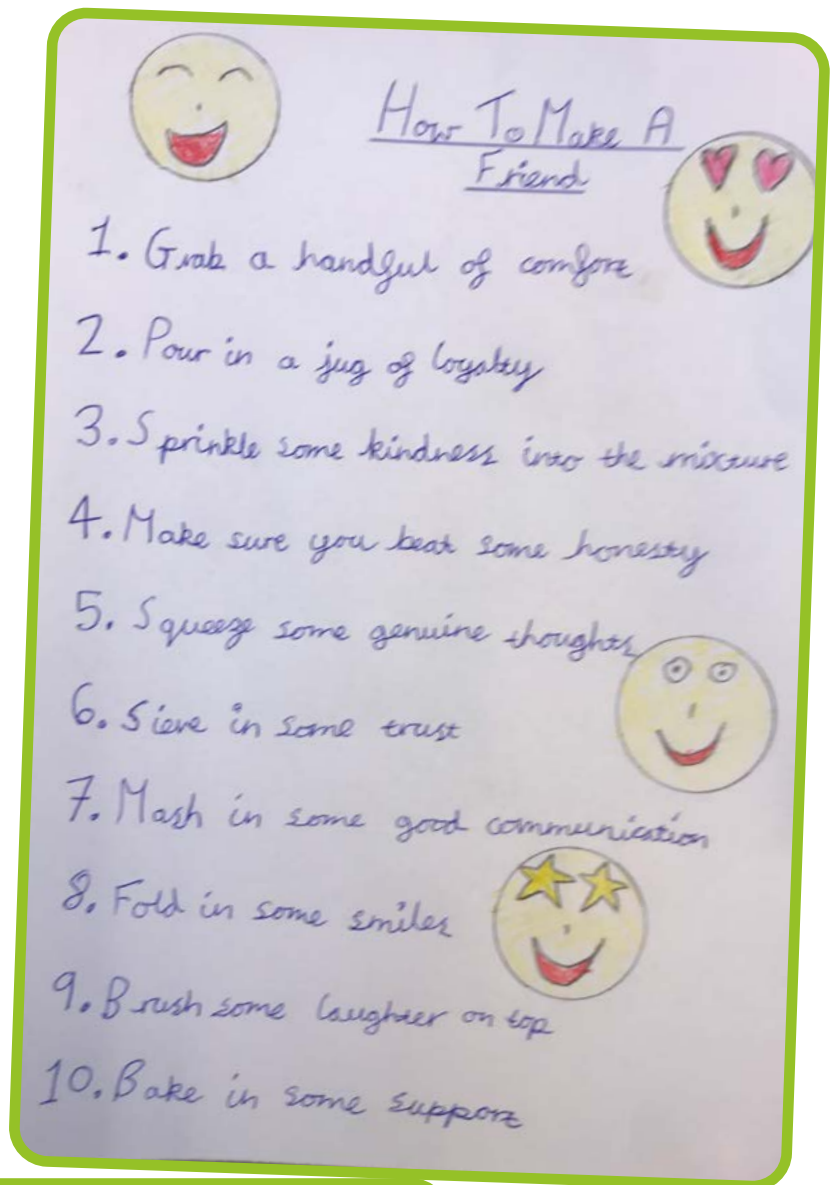 How To Make A
Friend
1. Grab a handful of comfort
2. Pour in a jug of loyalty
3. Sprinkle some kindness into the mixture
4. Make sure you beat some honesty
5. Squeeze some genuine thoughts
6. Sieve in some trust
7. Mash in some good communication
8. Fold in some smiles
9. Brush some laughter on top
10. Bake in some support